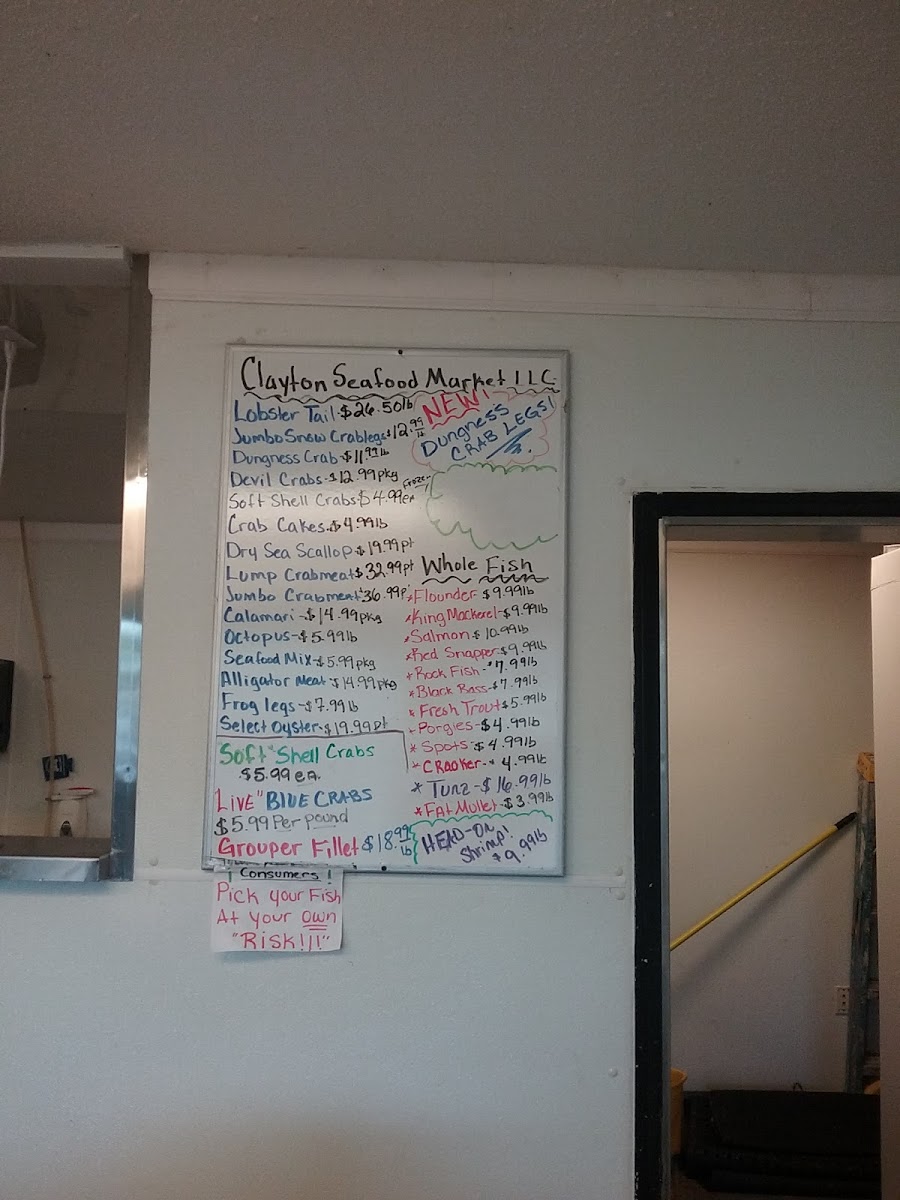 Clayton Seafood Market LLC
Lobster Tail-$26.50lb
Jumbo Snow Crablegs $12.99 lb
Dungness Crab-$11.99lb
Devil Crabs-$12.99pkg
Soft Shell Crabs-$4.99ea
Crab Cakes-$4.99lb
Dry Sea Scallop-$19.99pt
Lump Crabmeat $32.99pt
Jumbo Crabmeat $36.99pt
Calamari-$14.99pkg
Octopus-$5.99lb
Seafood Mix-$5.99pkg
Alligator Meat-$14.99pkg
Frog legs-$7.99lb
Select Oyster-$19.99pt
NEW!
Dungness
CRAB LEGS!
Whole Fish
*Flounder $9.99lb
*King Mackerel-$9.99lb
*Salmon $10.99lb
*Red Snapper-$9.99lb
*Rock Fish-$7.99lb
*Black Bass-$7.99lb
*Fresh Trout $5.99lb
*Porgies-$4.99lb
*Spots-$4.99lb
*CROAKER-$4.99lb
*Tuna-$16.99lb
*FAt Mullet-$3.99lb
Soft "Shell Crabs
$5.99 ea.
LIVE" BLUE CRABS
$5.99 Per pound
Grouper Fillet $18.99 lb
HEAD-ON
Shrimp!
$9.99lb
! Consumers!
Pick your Fish
At your own
"Risk!!!"